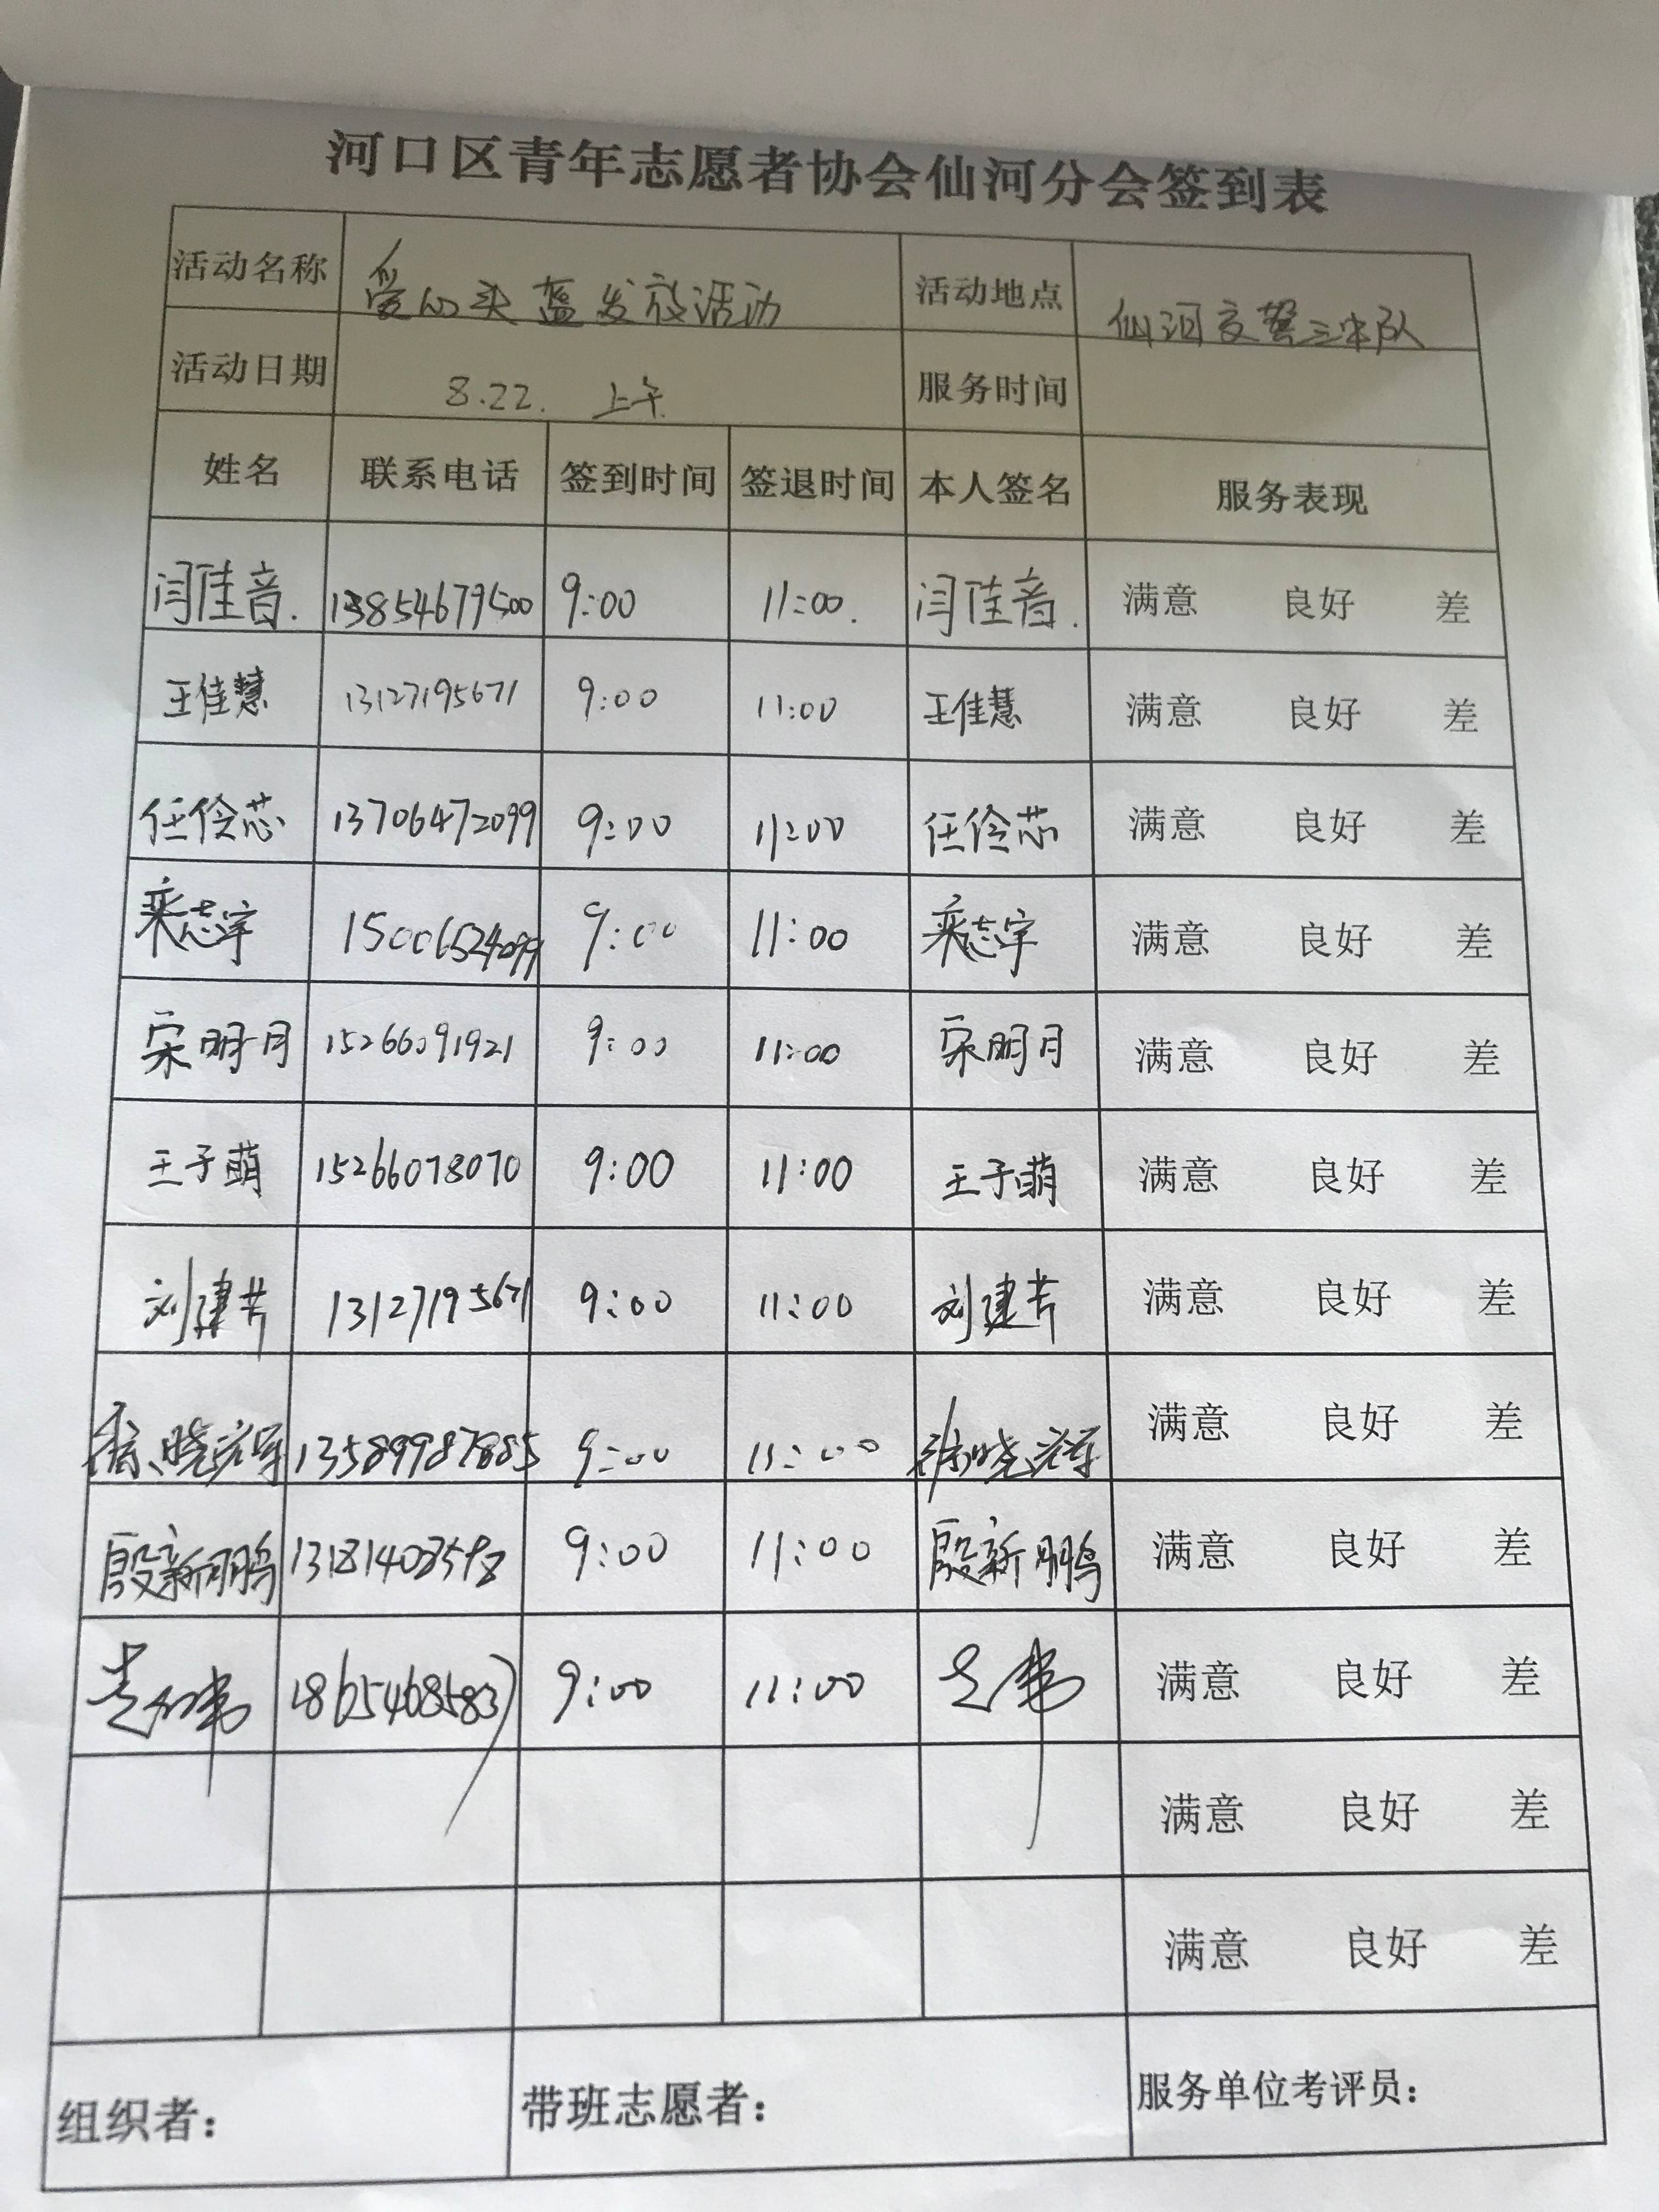 河口区青年志愿者协会仙河分会签到表
活动名称 爱心头盔发放活动 活动地点 仙河交警三中队
活动日期 8.22. 上午 服务时间
姓名 联系电话 签到时间 签退时间 本人签名 服务表现
闫佳音. 13854679500 9:00 11:00. 闫佳音. 满意 良好 差
王佳慧 13127195671 9:00 11:00 王佳慧 满意 良好 差
任伶芯 13706472099 9:00 11:00 任伶芯 满意 良好 差
栾志宇 15006524099 9:00 11:00 栾志宇 满意 良好 差
宋明月 15266091921 9:00 11:00 宋明月 满意 良好 差
王子萌 15266078070 9:00 11:00 王子萌 满意 良好 差
刘建芳 13127195671 9:00 11:00 刘建芳 满意 良好 差
13589987885 9:00 11:00 满意 良好 差
殷新鹏 9:00 11:00 殷新鹏 满意 良好 差
18654685837 9:00 11:00 满意 良好 差
满意 良好 差
满意 良好 差
组织者： 带班志愿者： 服务单位考评员：